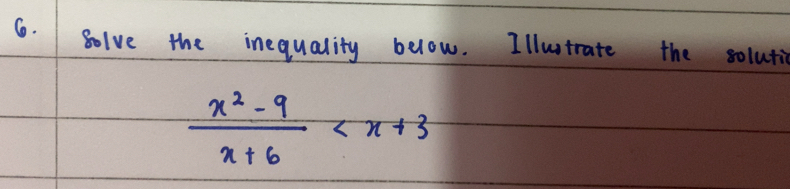 6. Solve the inequality below. Illustrate the
x² - 9
x + 6 < x + 3